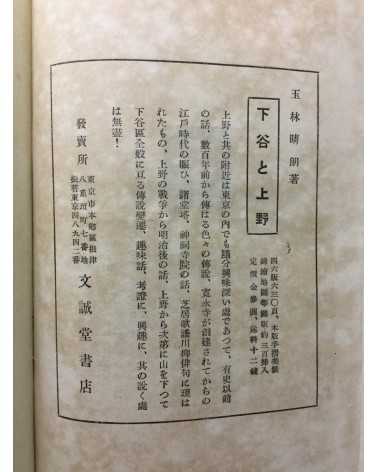 玉林晴朗著
下谷と上野
四六版六三〇頁、木版手摺美裝
錦繪地圖寫眞圖版約三百挿入
定價金參圓、送料十二錢
上野と其の附近は東京の內でも隨分興味深い處であつて、有史以前
の話、數百年前から傳はる色々の傳說、寬永寺が創建されてからの
江戶時代の賑ひ、諸堂塔、神祠寺院の話、芝居歌謠川柳俳句に現は
れたもの、上野の戰爭から明治後の話、上野から次第に山を下つて
下谷區全般に亙る傳說變遷、趣味話、考證に、興趣に、其の說く處
は無盡!
發賣所
東京市本鄕區根津
八重垣町七番地
振替東京四八九四一番
文誠堂書店